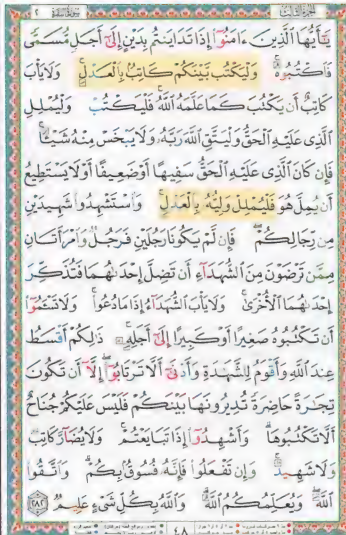 يَٰٓأَيُّهَا ٱلَّذِينَ ءَامَنُوٓا۟ إِذَا تَدَايَنتُم بِدَيْنٍ إِلَىٰٓ أَجَلٍ مُّسَمًّى
فَٱكْتُبُوهُ ۚ وَلْيَكْتُب بَّيْنَكُمْ كَاتِبٌۢ بِٱلْعَدْلِ ۚ وَلَا يَأْبَ
كَاتِبٌ أَن يَكْتُبَ كَمَا عَلَّمَهُ ٱللَّهُ ۚ فَلْيَكْتُبْ وَلْيُمْلِلِ
ٱلَّذِى عَلَيْهِ ٱلْحَقُّ وَلْيَتَّقِ ٱللَّهَ رَبَّهُۥ وَلَا يَبْخَسْ مِنْهُ شَيْـًٔا ۚ
فَإِن كَانَ ٱلَّذِى عَلَيْهِ ٱلْحَقُّ سَفِيهًا أَوْ ضَعِيفًا أَوْ لَا يَسْتَطِيعُ
أَن يُمِلَّ هُوَ فَلْيُمْلِلْ وَلِيُّهُۥ بِٱلْعَدْلِ ۚ وَٱسْتَشْهِدُوا۟ شَهِيدَيْنِ
مِن رِّجَالِكُمْ ۖ فَإِن لَّمْ يَكُونَا رَجُلَيْنِ فَرَجُلٌ وَٱمْرَأَتَانِ
مِمَّن تَرْضَوْنَ مِنَ ٱلشُّهَدَآءِ أَن تَضِلَّ إِحْدَىٰهُمَا فَتُذَكِّرَ
إِحْدَىٰهُمَا ٱلْأُخْرَىٰ ۚ وَلَا يَأْبَ ٱلشُّهَدَآءُ إِذَا مَا دُعُوا۟ ۚ وَلَا تَسْـَٔمُوٓا۟
أَن تَكْتُبُوهُ صَغِيرًا أَوْ كَبِيرًا إِلَىٰٓ أَجَلِهِۦ ۚ ذَٰلِكُمْ أَقْسَطُ
عِندَ ٱللَّهِ وَأَقْوَمُ لِلشَّهَٰدَةِ وَأَدْنَىٰٓ أَلَّا تَرْتَابُوٓا۟ ۖ إِلَّآ أَن تَكُونَ
تِجَٰرَةً حَاضِرَةً تُدِيرُونَهَا بَيْنَكُمْ فَلَيْسَ عَلَيْكُمْ جُنَاحٌ
أَلَّا تَكْتُبُوهَا ۗ وَأَشْهِدُوٓا۟ إِذَا تَبَايَعْتُمْ ۚ وَلَا يُضَآرَّ كَاتِبٌ
وَلَا شَهِيدٌ ۚ وَإِن تَفْعَلُوا۟ فَإِنَّهُۥ فُسُوقٌۢ بِكُمْ ۗ وَٱتَّقُوا۟
ٱللَّهَ ۖ وَيُعَلِّمُكُمُ ٱللَّهُ ۗ وَٱللَّهُ بِكُلِّ شَىْءٍ عَلِيمٌ ٢٨٢
٤٨